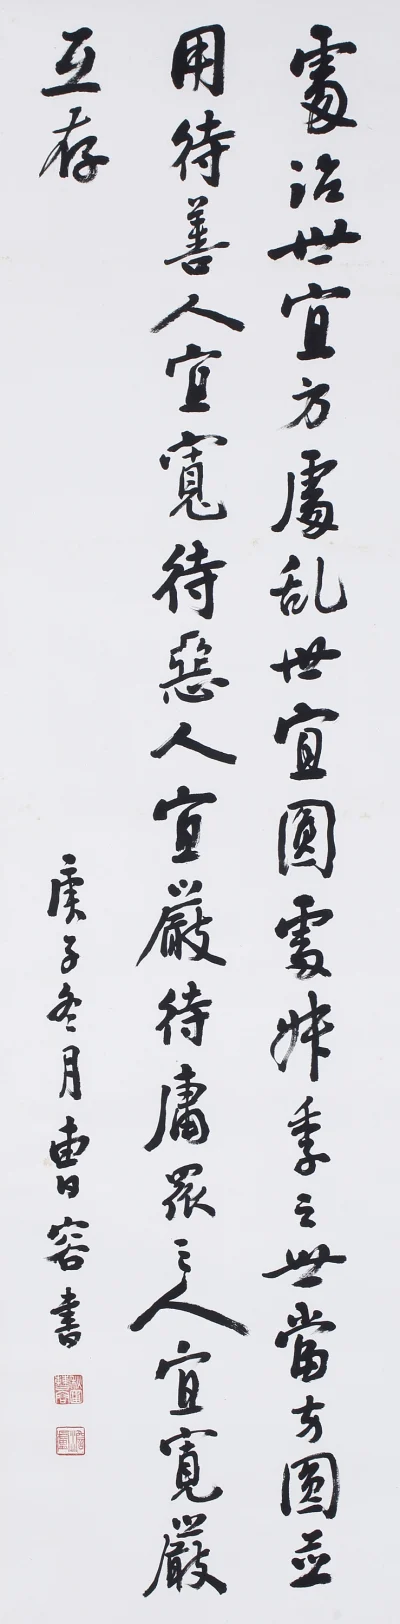 處治世宜方處乱世宜圓處叔季之世當方圓並
用待善人宜寬待惡人宜嚴待庸眾之人宜寬嚴
互存
庚子冬月曹容書